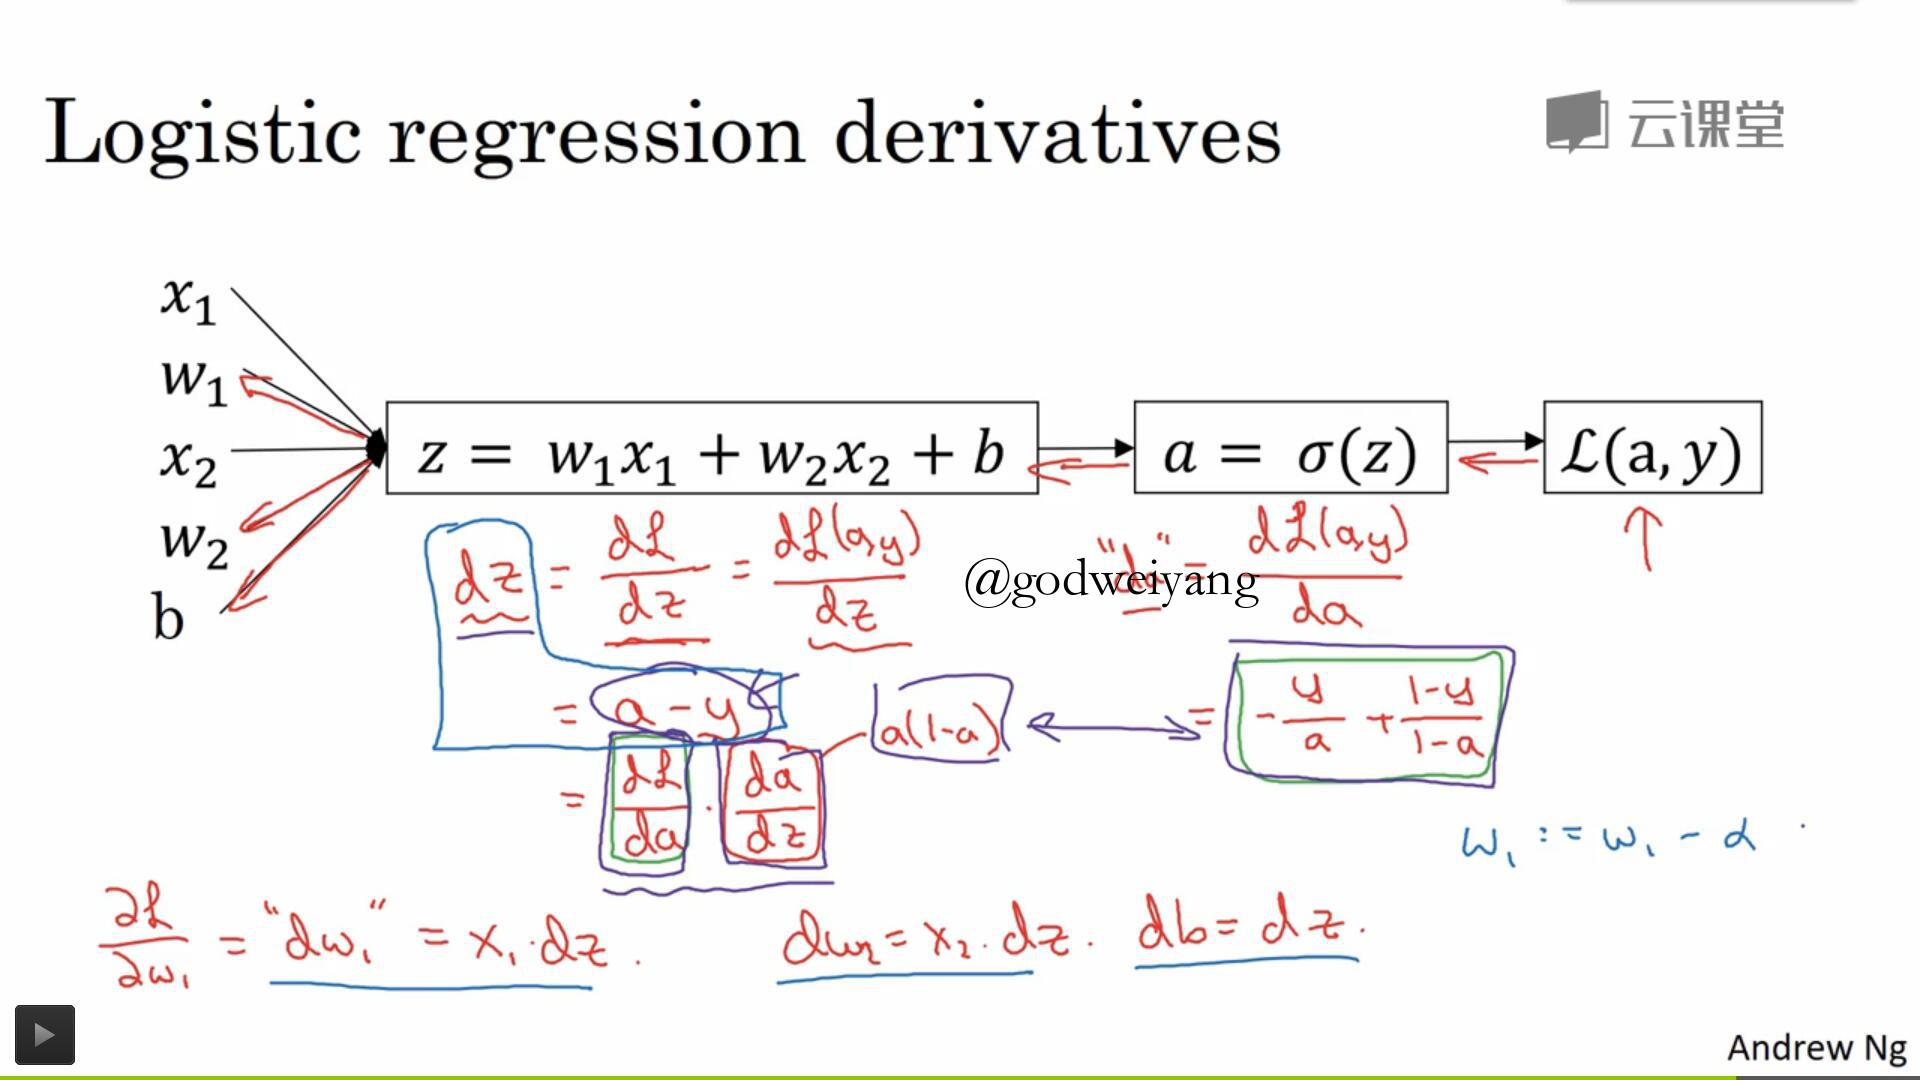 Logistic regression derivatives
云课堂
x₁
w₁
x₂
w₂
b
z = w₁x₁ + w₂x₂ + b
a = σ(z)
ℒ(a, y)
dz = dℒ/dz = dℒ(a,y)/dz
"da" = dℒ(a,y)/da
@godweiyang
= a - y
a(1-a)
= -y/a + (1-y)/(1-a)
= dℒ/da · da/dz
w₁ := w₁ - α
∂ℒ/∂w₁ = "dw₁" = x₁·dz.
dw₂ = x₂·dz.
db = dz.
Andrew Ng